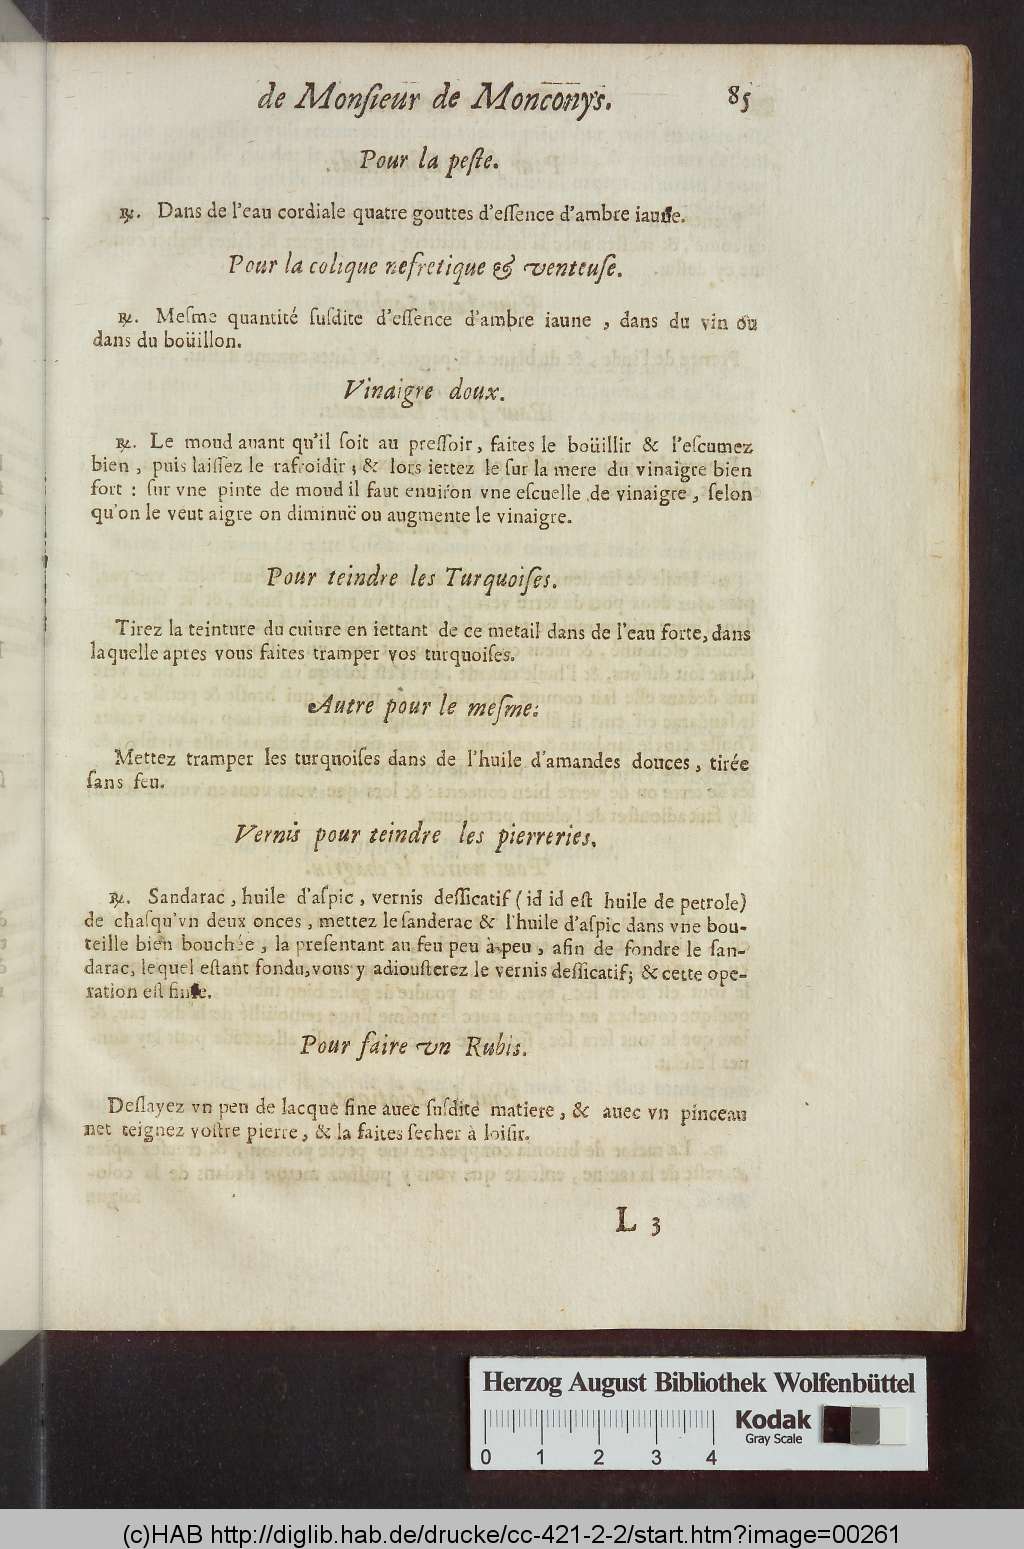 de Monſieur de Monconys. 85
Pour la peſte.
℞. Dans de l'eau cordiale quatre gouttes d'eſſence d'ambre iaune.
Pour la colique nefretique & venteuſe.
℞. Meſme quantité ſuſdite d'eſſence d'ambre iaune, dans du vin ou
dans du boüillon.
Vinaigre doux.
℞. Le moud auant qu'il ſoit au preſſoir, faites le boüillir & l'eſcumez
bien, puis laiſſez le rafroidir; & lors iettez le ſur la mere du vinaigre bien
fort: ſur vne pinte de moud il faut enuiron vne eſcuelle de vinaigre, ſelon
qu'on le veut aigre on diminuë ou augmente le vinaigre.
Pour teindre les Turquoiſes.
Tirez la teinture du cuiure en iettant de ce metail dans de l'eau forte, dans
laquelle apres vous faites tramper vos turquoiſes.
Autre pour le meſme.
Mettez tramper les turquoiſes dans de l'huile d'amandes douces, tirée
ſans feu.
Vernis pour teindre les pierreries.
℞. Sandarac, huile d'aſpic, vernis deſſicatif (id id eſt huile de petrole)
de chaſqu'vn deux onces, mettez le ſanderac & l'huile d'aſpic dans vne bou-
teille bien bouchée, la preſentant au feu peu à peu, afin de fondre le ſan-
darac, lequel eſtant fondu, vous y adiouſterez le vernis deſſicatif; & cette ope-
ration eſt finie.
Pour faire vn Rubis.
Deſlayez vn peu de lacque fine auec ſuſdite matiere, & auec vn pinceau
net teignez voſtre pierre, & la faites ſecher à loiſir.
L 3
Herzog August Bibliothek Wolfenbüttel
Kodak
Gray Scale
0 1 2 3 4
(c)HAB http://diglib.hab.de/drucke/cc-421-2-2/start.htm?image=00261